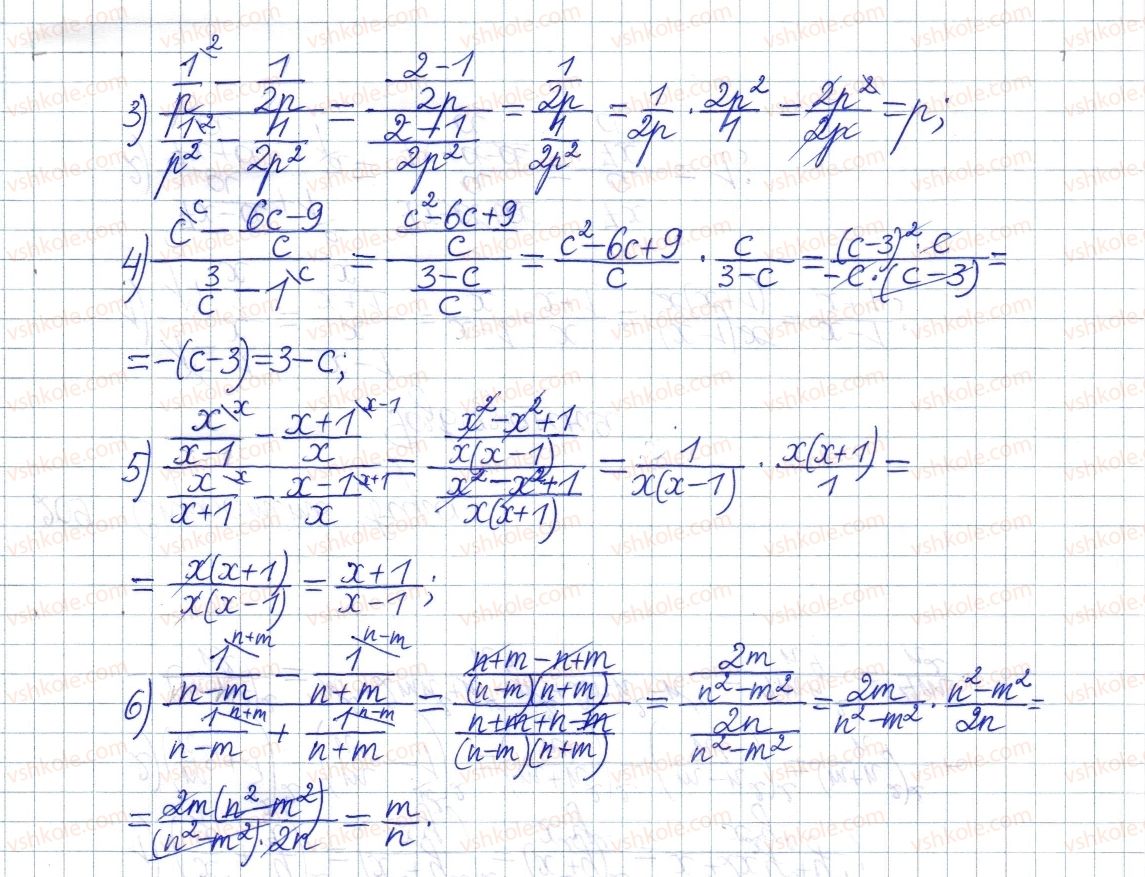 3) (1\² / p − 1 / 2p) / (1\² / p² − 1 / 2p²) = ((2 − 1) / 2p) / ((2 − 1) / 2p²) = (1 / 2p) / (1 / 2p²) = 1 / 2p · 2p² / 1 = 2p² / 2p = p;
4) (c\ᶜ − (6c − 9) / c) / (3 / c − 1\ᶜ) = ((c² − 6c + 9) / c) / ((3 − c) / c) = (c² − 6c + 9) / c · c / (3 − c) = ((c − 3)² · c) / (−c · (c − 3)) =
= −(c − 3) = 3 − c;
5) (x\ˣ / (x − 1) − (x + 1)\ˣ⁻¹ / x) / (x\ˣ / (x + 1) − (x − 1)\ˣ⁺¹ / x) = ((x² − x² + 1) / x(x − 1)) / ((x² − x² + 1) / x(x + 1)) = 1 / x(x − 1) · x(x + 1) / 1 =
= x(x + 1) / x(x − 1) = (x + 1) / (x − 1);
6) (1\ⁿ⁺ᵐ / (n − m) − 1\ⁿ⁻ᵐ / (n + m)) / (1\ⁿ⁺ᵐ / (n − m) + 1\ⁿ⁻ᵐ / (n + m)) = ((n + m − n + m) / (n − m)(n + m)) / ((n + m + n − m) / (n − m)(n + m)) = (2m / (n² − m²)) / (2n / (n² − m²)) = 2m / (n² − m²) · (n² − m²) / 2n =
= 2m(n² − m²) / (n² − m²) · 2n = m / n.